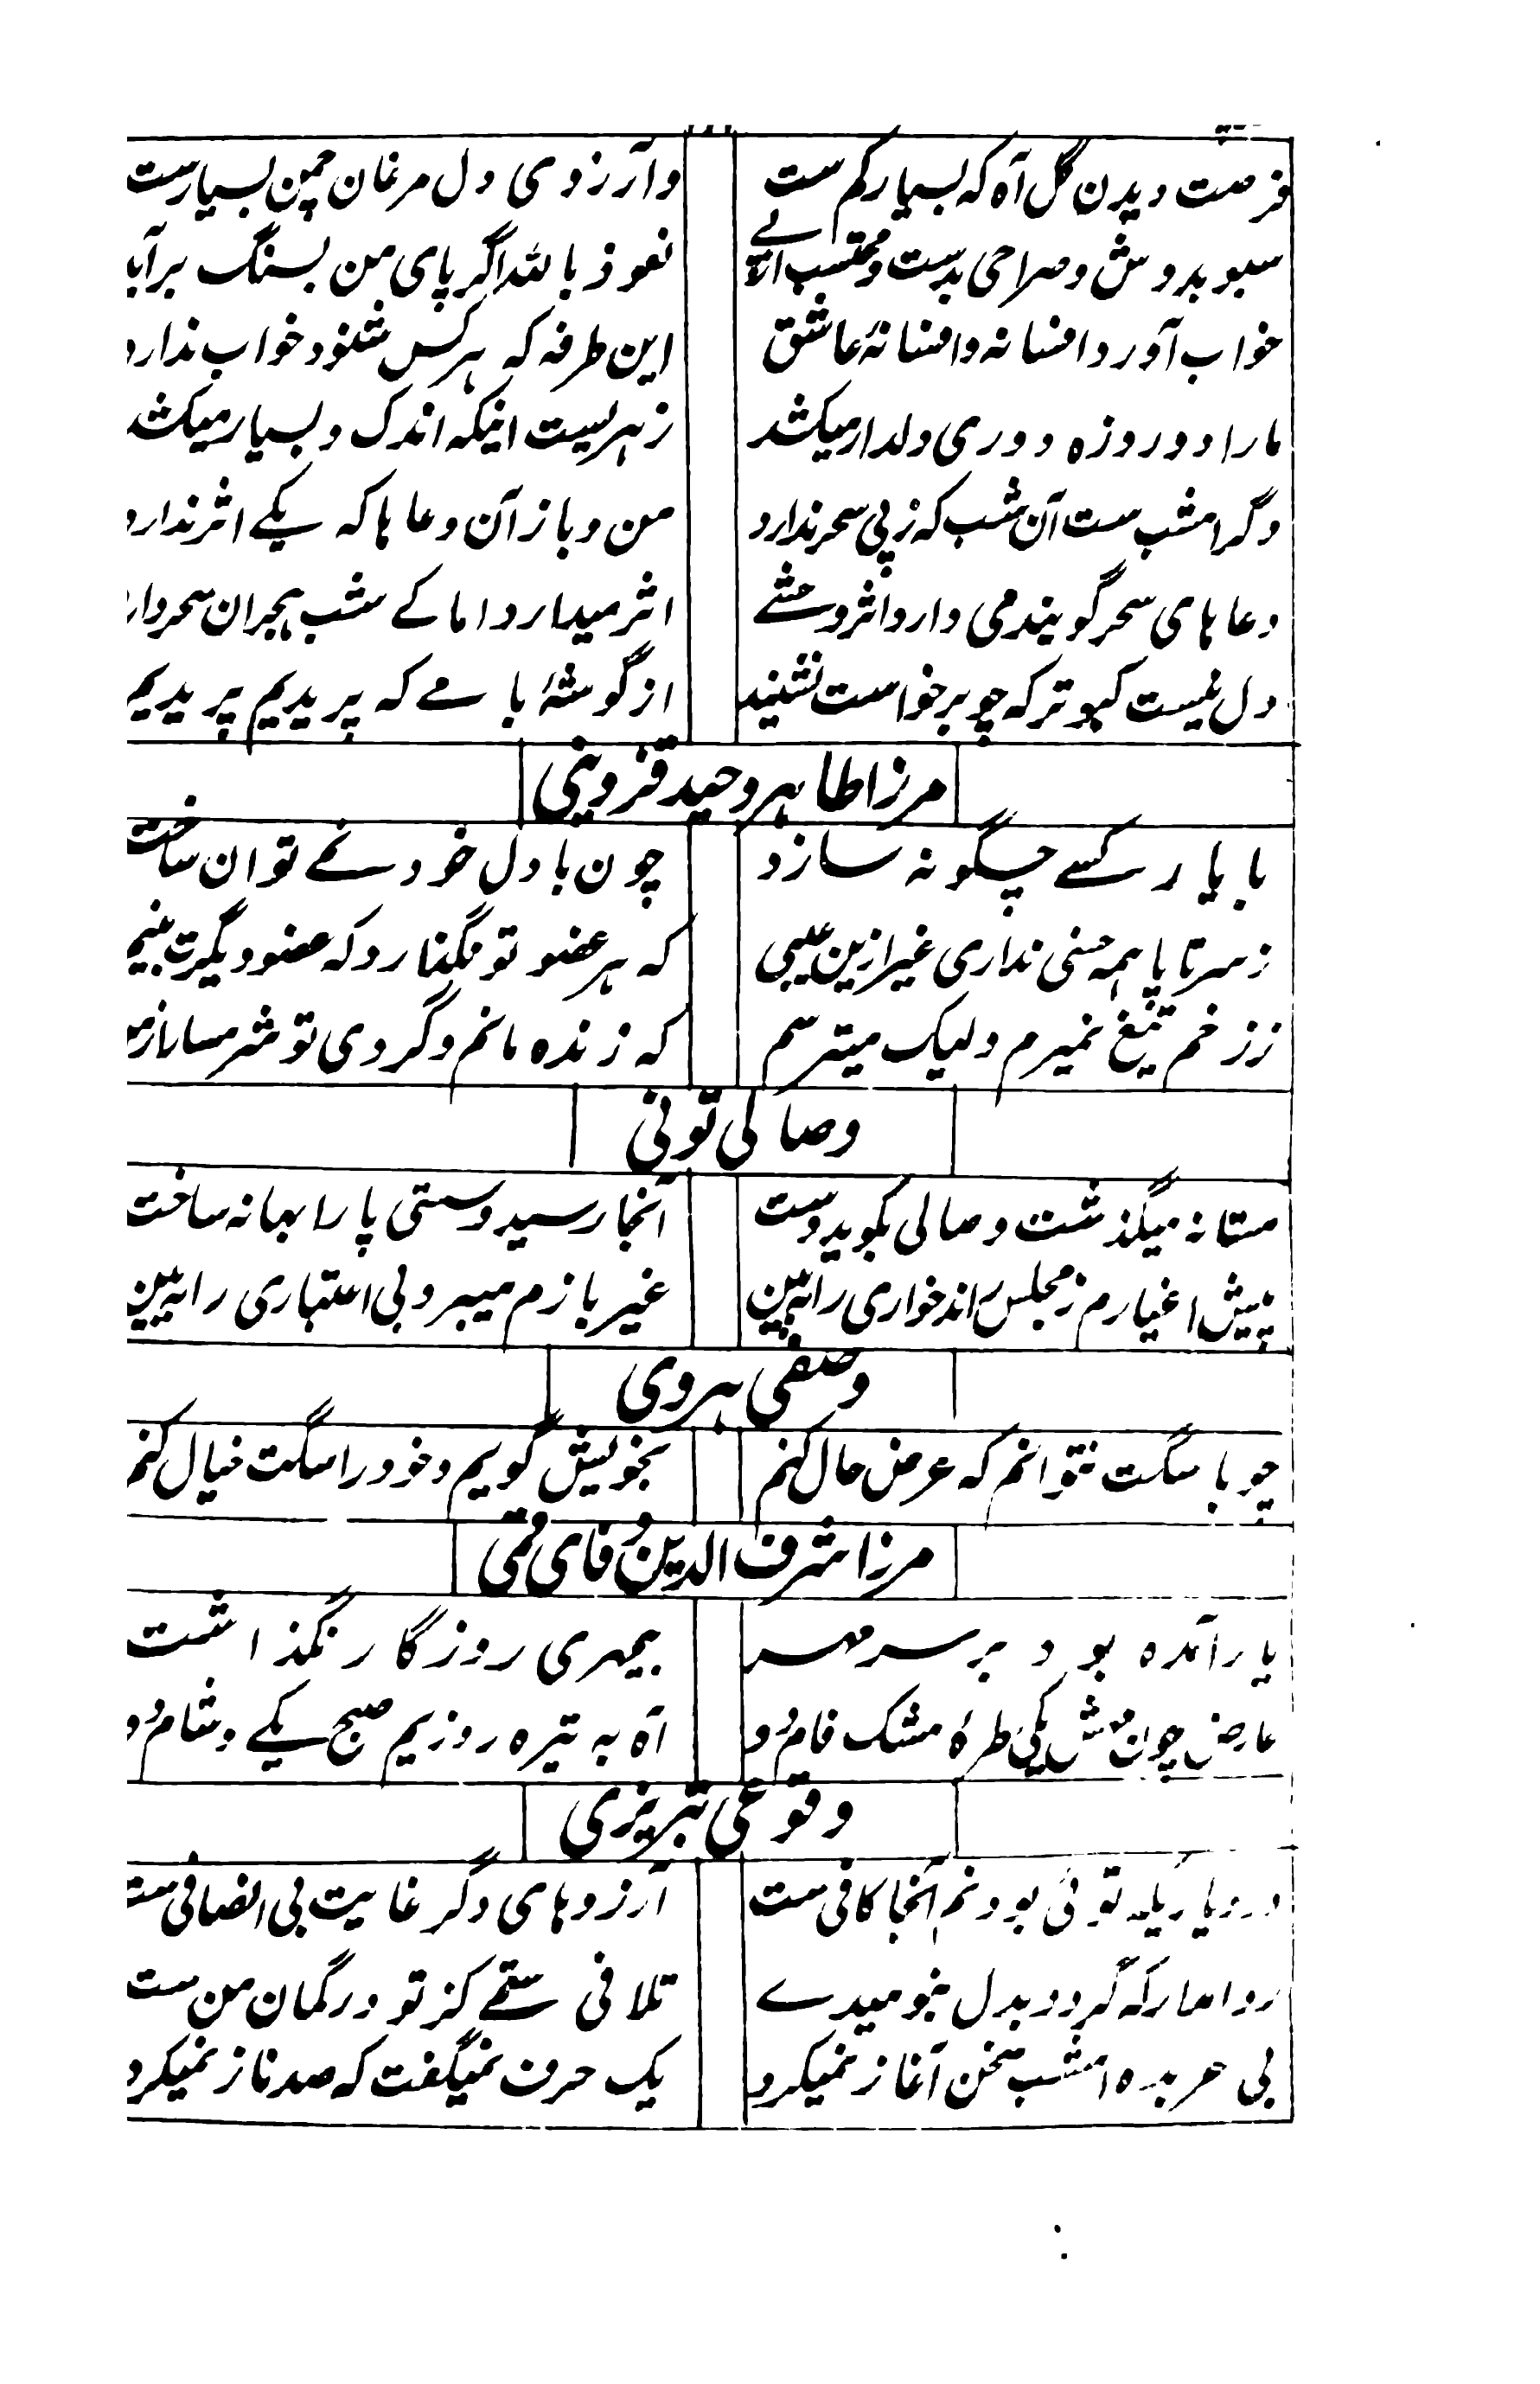 فرصت دیدن گل آه که بسیار کم ست وآرزوی دل مرغان چمن بسیارست
سبو بدوش و صراحی بدست و محتسب از پے نعوذ بالله اگر پای من بسنگ برآید
خواب آورد افسانه و افسانهٔ عاشق این طرفه که هر کس شنود خواب ندارد
مارا دوروزه دوری دلدار میکشد زهریست اینکه اندک و بسیار میکشد
دگر امشب ست آن شب که ز پی سحر ندارد من و باز آن دعا ها که یکے اثر ندارد
دعا های سحر گویند می دارد اثر وحشے اثر میدارد اما کے شب هجران سحر دارد
دل نیست کبوتر که چو برخواست نشیند از گوشهٔ بامے که پریدیم پریدیم
مرزا طاهر وحید قزوینی
با یار کسے چگونه سازد چون با دل خود نمے توان ساخت
ز سر تا پا همه حسنی نداری غیر ازین عیبی که هر عضو تو نگذارد که عضو دیگرت بینم
ز زخم تیغ نمیرم ولیک میترسم که زنده مانم و گردی تو شرمسار از من
وصالی تونی
مستانه میگذشت وصالی بکوی دوست آنجا رسید و سستی پا را بهانه ساخت
پیش اغیارم ز مجلس راند خواری را ببین غیر بازم میبرد بی اعتباری را ببین
وصفی هروی
چو با سگت نتوانم که عرض حال کنم بخویش گویم و خود را سگت خیال کنم
مرزا شرف الدین وفای قمی
یار آمده بود بر سر مهر بیمهری روزگار نگذاشت
عارض چون مهش یکی طرهٔ مشک فام دو آه به تیره روزیم صبح یکے و شام دو
وقوعی تبریزی
در دیاریکه توئی بودنم آنجا کافی ست آرزوهای دگر غایت بی انصافی ست
روا مدار که گردد بدل بنومیدے تلافی ستمے کز تو در گمان من ست
بی عربده امشب سخن آغاز نمیکرد یک حرف نمیگفت که صد ناز نمیکرد